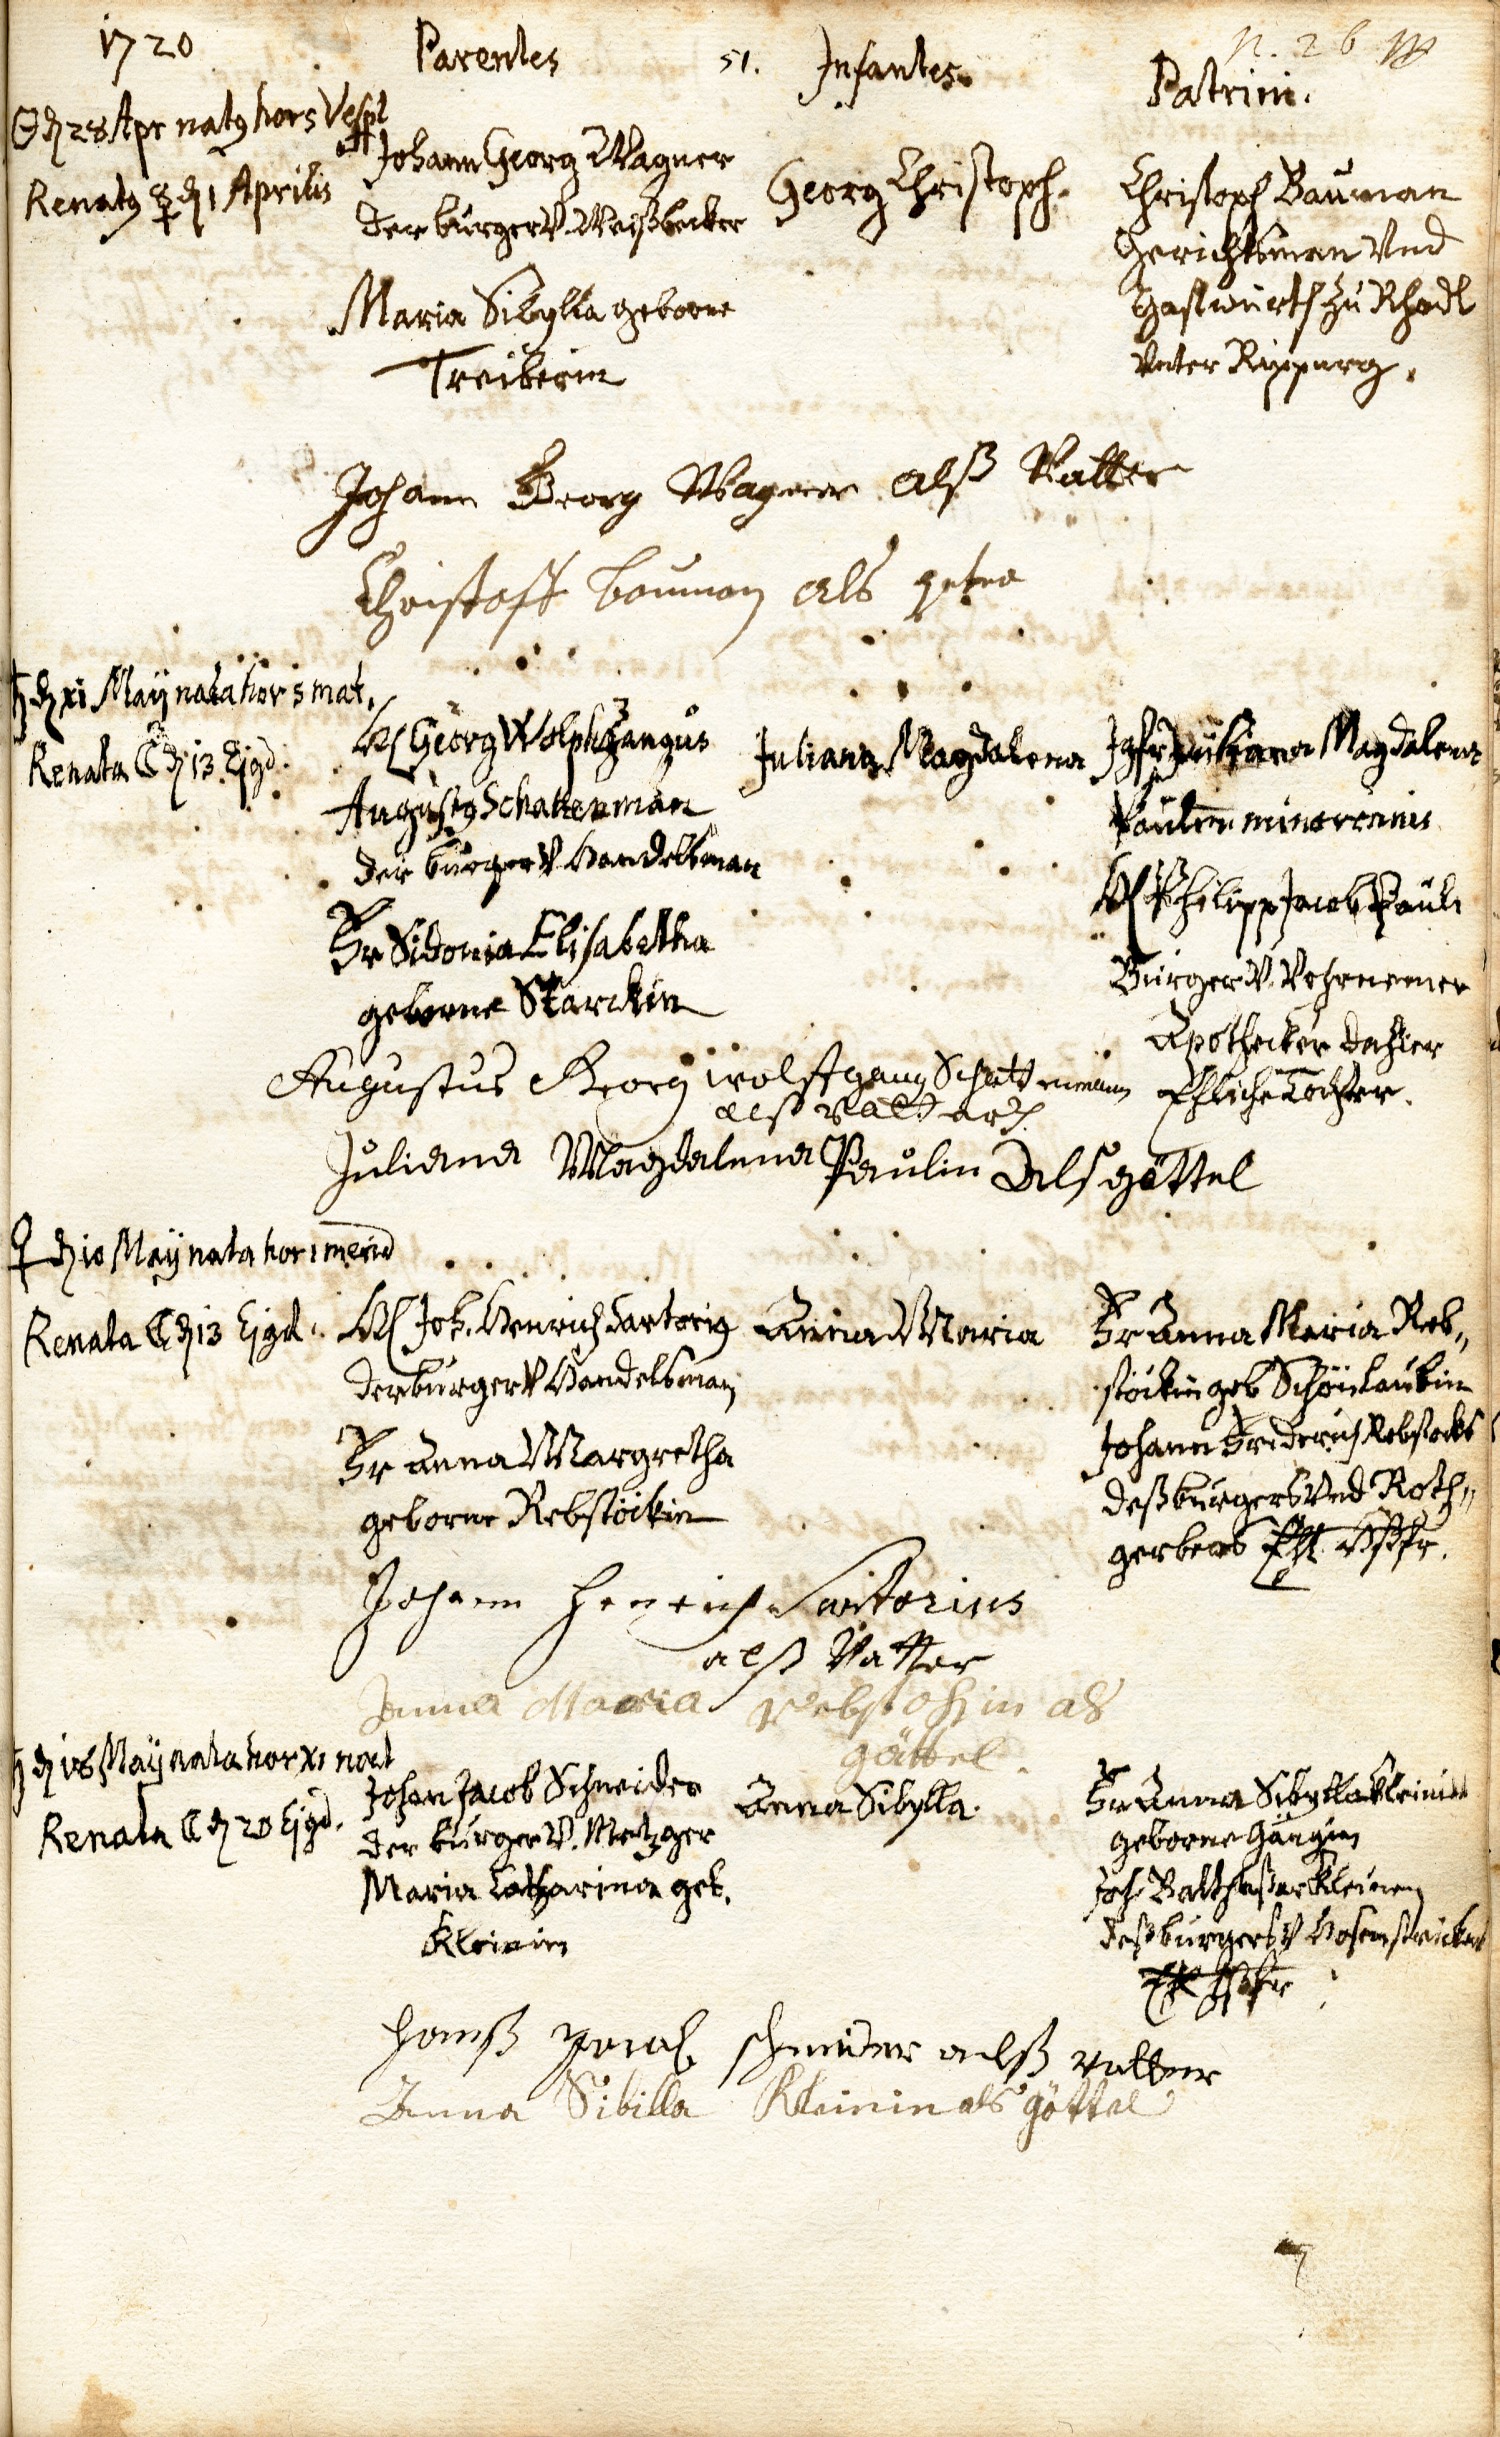 1720
Parentes
51.
Infantes.
N. 26
Patrini.
☉ d 28 Apr natq hor 5 Vesp
Renatq ☿ d 1 Aprilis
Johann Georg Wagner
der burger V. Weißbecker
Maria Sibylla geborne
Treiberin
Georg Christoph.
Christoph Bauman
Gerichtsman Vnd
Gastwürth zu Rhodt
Vnter Rippurg.
Johann Georg Wagner alß Vatter
Christoff bauman als
♄ d xi Maÿ nata hor 5 mat.
Renata ☾ d 13. Ejqd.
H Georg Wolphgangus
Augustq Schattenman
der burger V. Handelsman
Fr Sidonia Elisabetha
geborne Starckin
Juliana Magdalena
Jgfr Juliana Magdalena
Paulin minorennis
H Philipp Jacob Pauli
Burger V. Vohrnemer
Apothecker dahier
Ehliche Tochter.
Augustus Georg wolffgang Schattenmann
alß vatter
Juliana Magdalena Paulin Als göttel
♀ d 10 Maÿ nata hor 1 merid
Renata ☾ d 13 Ejqd.
H Joh. Henrich Sartorig
der burger V Handelsman
Fr Anna Margretha
geborne Rebstöckin
Anna Maria
Fr Anna Maria Reb„
stöckin geb Schönlaubin
Johann Friderich Rebstocks
deß burgers Vnd Roth„
gerbers Ehl. Hßfr.
Johann Henrich Sartorius
alß Vatter
Anna Maria rebstohin als
göttel.
♄ d 18 Maÿ nata hor xi noct
Renata ☾ d 20 Ejqd.
Johan Jacob Schneider
der burger V. Metzger
Maria Catharina geb.
Kleinin
Anna Sibylla.
Fr Anna Sibylla Kleinin
geborne
Joh. Balthaßar Kleinen
deß burgers V Hosenstrickers
Ehl Hßfr
hanß Jacob schneider alß vatter
Anna Sibilla Kleinin als göttel